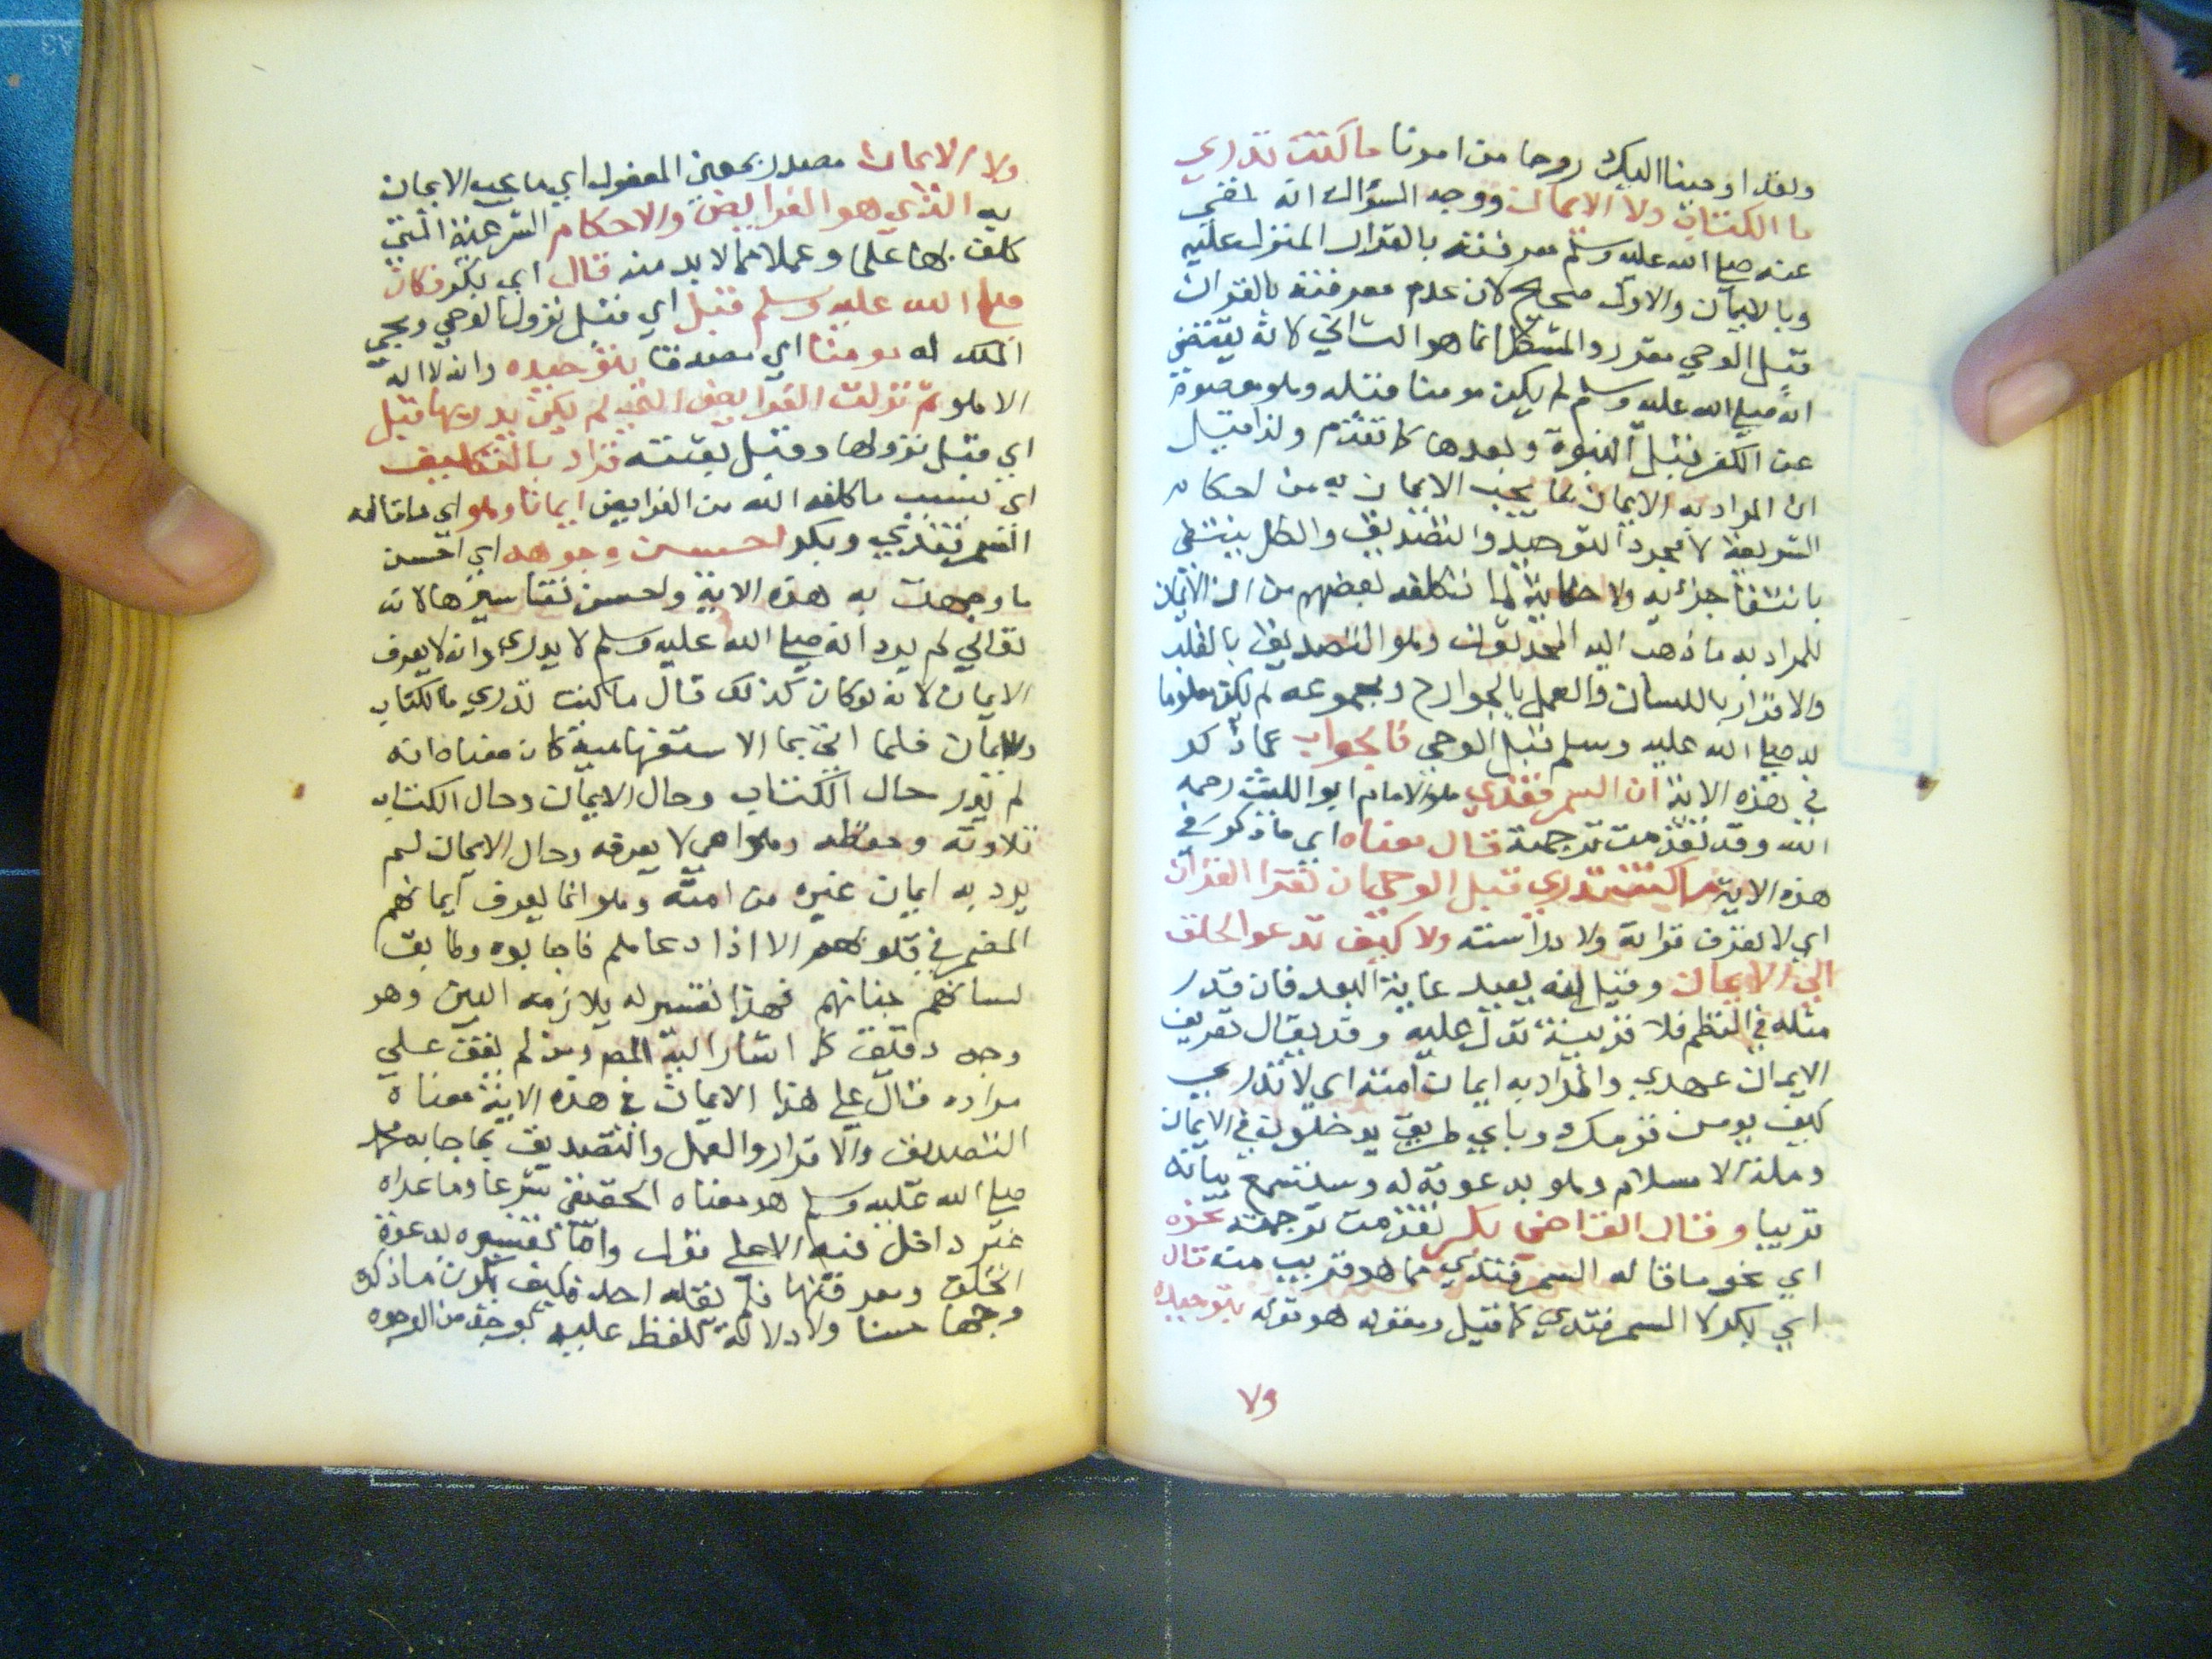 ولقد اوحينا اليك روحا من امرنا ما كنت تدري
ما الكتاب ولا الايمان ووجه السؤال انه نفى
عنه صلى الله عليه وسلم معرفته بالقران المنزل عليه
وبالايمان والاول صحيح لان عدم معرفته بالقران
قبل الوحي مقرر والمشكل انما هو الثاني لانه يقتضي
انه صلى الله عليه وسلم لم يكن مومنا قبله وهو معصوم
عن الكفر قبل النبوة وبعدها كما تقدم ولذا قيل
ان المراد به الايمان بما يجب الايمان به من احكام
الشريعة لا مجرد التوحيد والتصديق والكل ينتفي
بانتفا جزئه ولا حاجة لما تكلفه بعضهم من ان الايمان
المراد به ما ذهب اليه المحدثون وهو التصديق بالقلب
والاقرار باللسان والعمل بالجوارح ومجموعه لم يكن معلوما
له صلى الله عليه وسلم قبل الوحي فالجواب عما ذكر
في هذه الاية ان السمرقندي هو الامام ابو الليث رحمه
الله وقد تقدمت ترجمته قال معناه اي ما ذكر في
هذه الاية ما كنت تدري قبل الوحي ان تقرا القران
اي لا تعرف قراته ولا دراسته ولا كيف تدعو الخلق
الى الايمان وقيل انه بعيد غاية البعد فان قدر
مثله في النظم فلا قرينة تدل عليه وقد يقال تعريف
الايمان عهدي والمراد به ايمان امته اي لا تدري
كيف يومن قومك وباي طريق يدخلون في الايمان
وملة الاسلام وهو بدعوته له وستسمع بيانه
قريبا وقال القاضي بكر تقدمت ترجمته نحوه
اي نحو ما قاله السمرقندي مما هو قريب منه قال
اي بكر لا السمرقندي كما قيل ومقوله هو قوله بتوحيده
٧٩
ولا الايمان مصدر بمعنى المفعول اي ما يجب الايمان
به الذي هو الفرايض والاحكام الشرعية التي
كلف بها علما وعملا مما لا بد منه قال اي بكر فكان
صلى الله عليه وسلم قبل اي قبل نزول الوحي ومجي
الملك له مومنا اي مصدقا بتوحيده وانه لا اله
الا هو ثم نزلت الفرايض التي لم يكن يدريها قبل
اي قبل نزولها وقبل بعثته فزاد بالتكليف
اي بسبب ما كلفه الله من الفرايض ايمانا وهو اي ما قاله
السمرقندي وبكر احسن وجوهه اي احسن
ما وجهت به هذه الاية واحسن تفاسيرها لان
تعالى لم يرد انه صلى الله عليه وسلم لا يدري وانه لا يعرف
الايمان لانه لو كان كذلك قال ما كنت تدري الكتاب
والايمان فلما اتى بما الاستفهامية كان معناه انه
لم يدر حال الكتاب وحال الايمان وحال الكتاب
تلاوته وحفظه وهو امي لا يعرفه وحال الايمان لم
يرد به ايمان غيره من امته وهو انما يعرف ايمانهم
المضمر في قلوبهم الا اذا دعاهم فاجابوه وطابق
لسانهم جنانهم فهذا تفسير له بلازمه البين وهو
وجه دقيق كما اشار اليه المصر ومن لم يقف على
مراده قال على هذا الايمان في هذه الاية معناه
التصديق والاقرار والعمل والتصديق بما جا به محمد
صلى الله عليه وسلم هو معناه الحقيقي شرعا وما عداه
غير داخل فيه الا على قول واما تفسيره بدعوة
الخلق ومعرفتها فلم نقله احد فكيف يكون ما ذكره
وجها حسنا ولا دلالة للفظ عليه بوجه من الوجوه